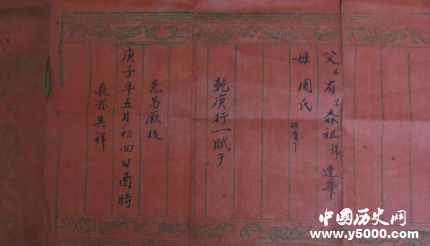 父名有字森祖號達華
母周氏
乾庚行一賦于
克昌厥後
庚子年五月初四日酉時
長發其祥
中國历史网
www.y5000.com